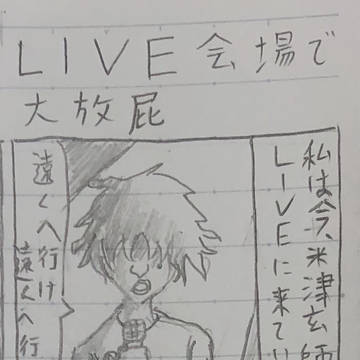 LIVE会場で
大放屁
私は今、米津玄師
LIVEに来てい
遠くへ行け
遠くへ行